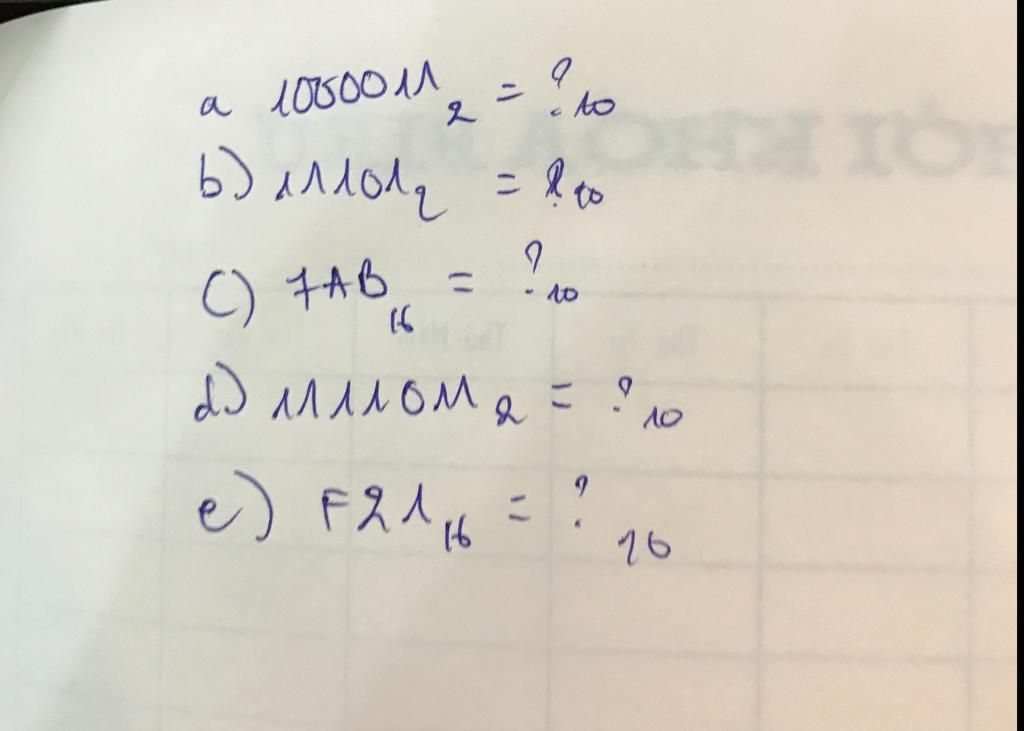 a 1000011₂ = ?₁₀
b) 11101₂ = ?₁₀
c) 7AB₁₆ = ?₁₀
d) 1111011₂ = ?₁₀
e) F21₁₆ = ?₁₀